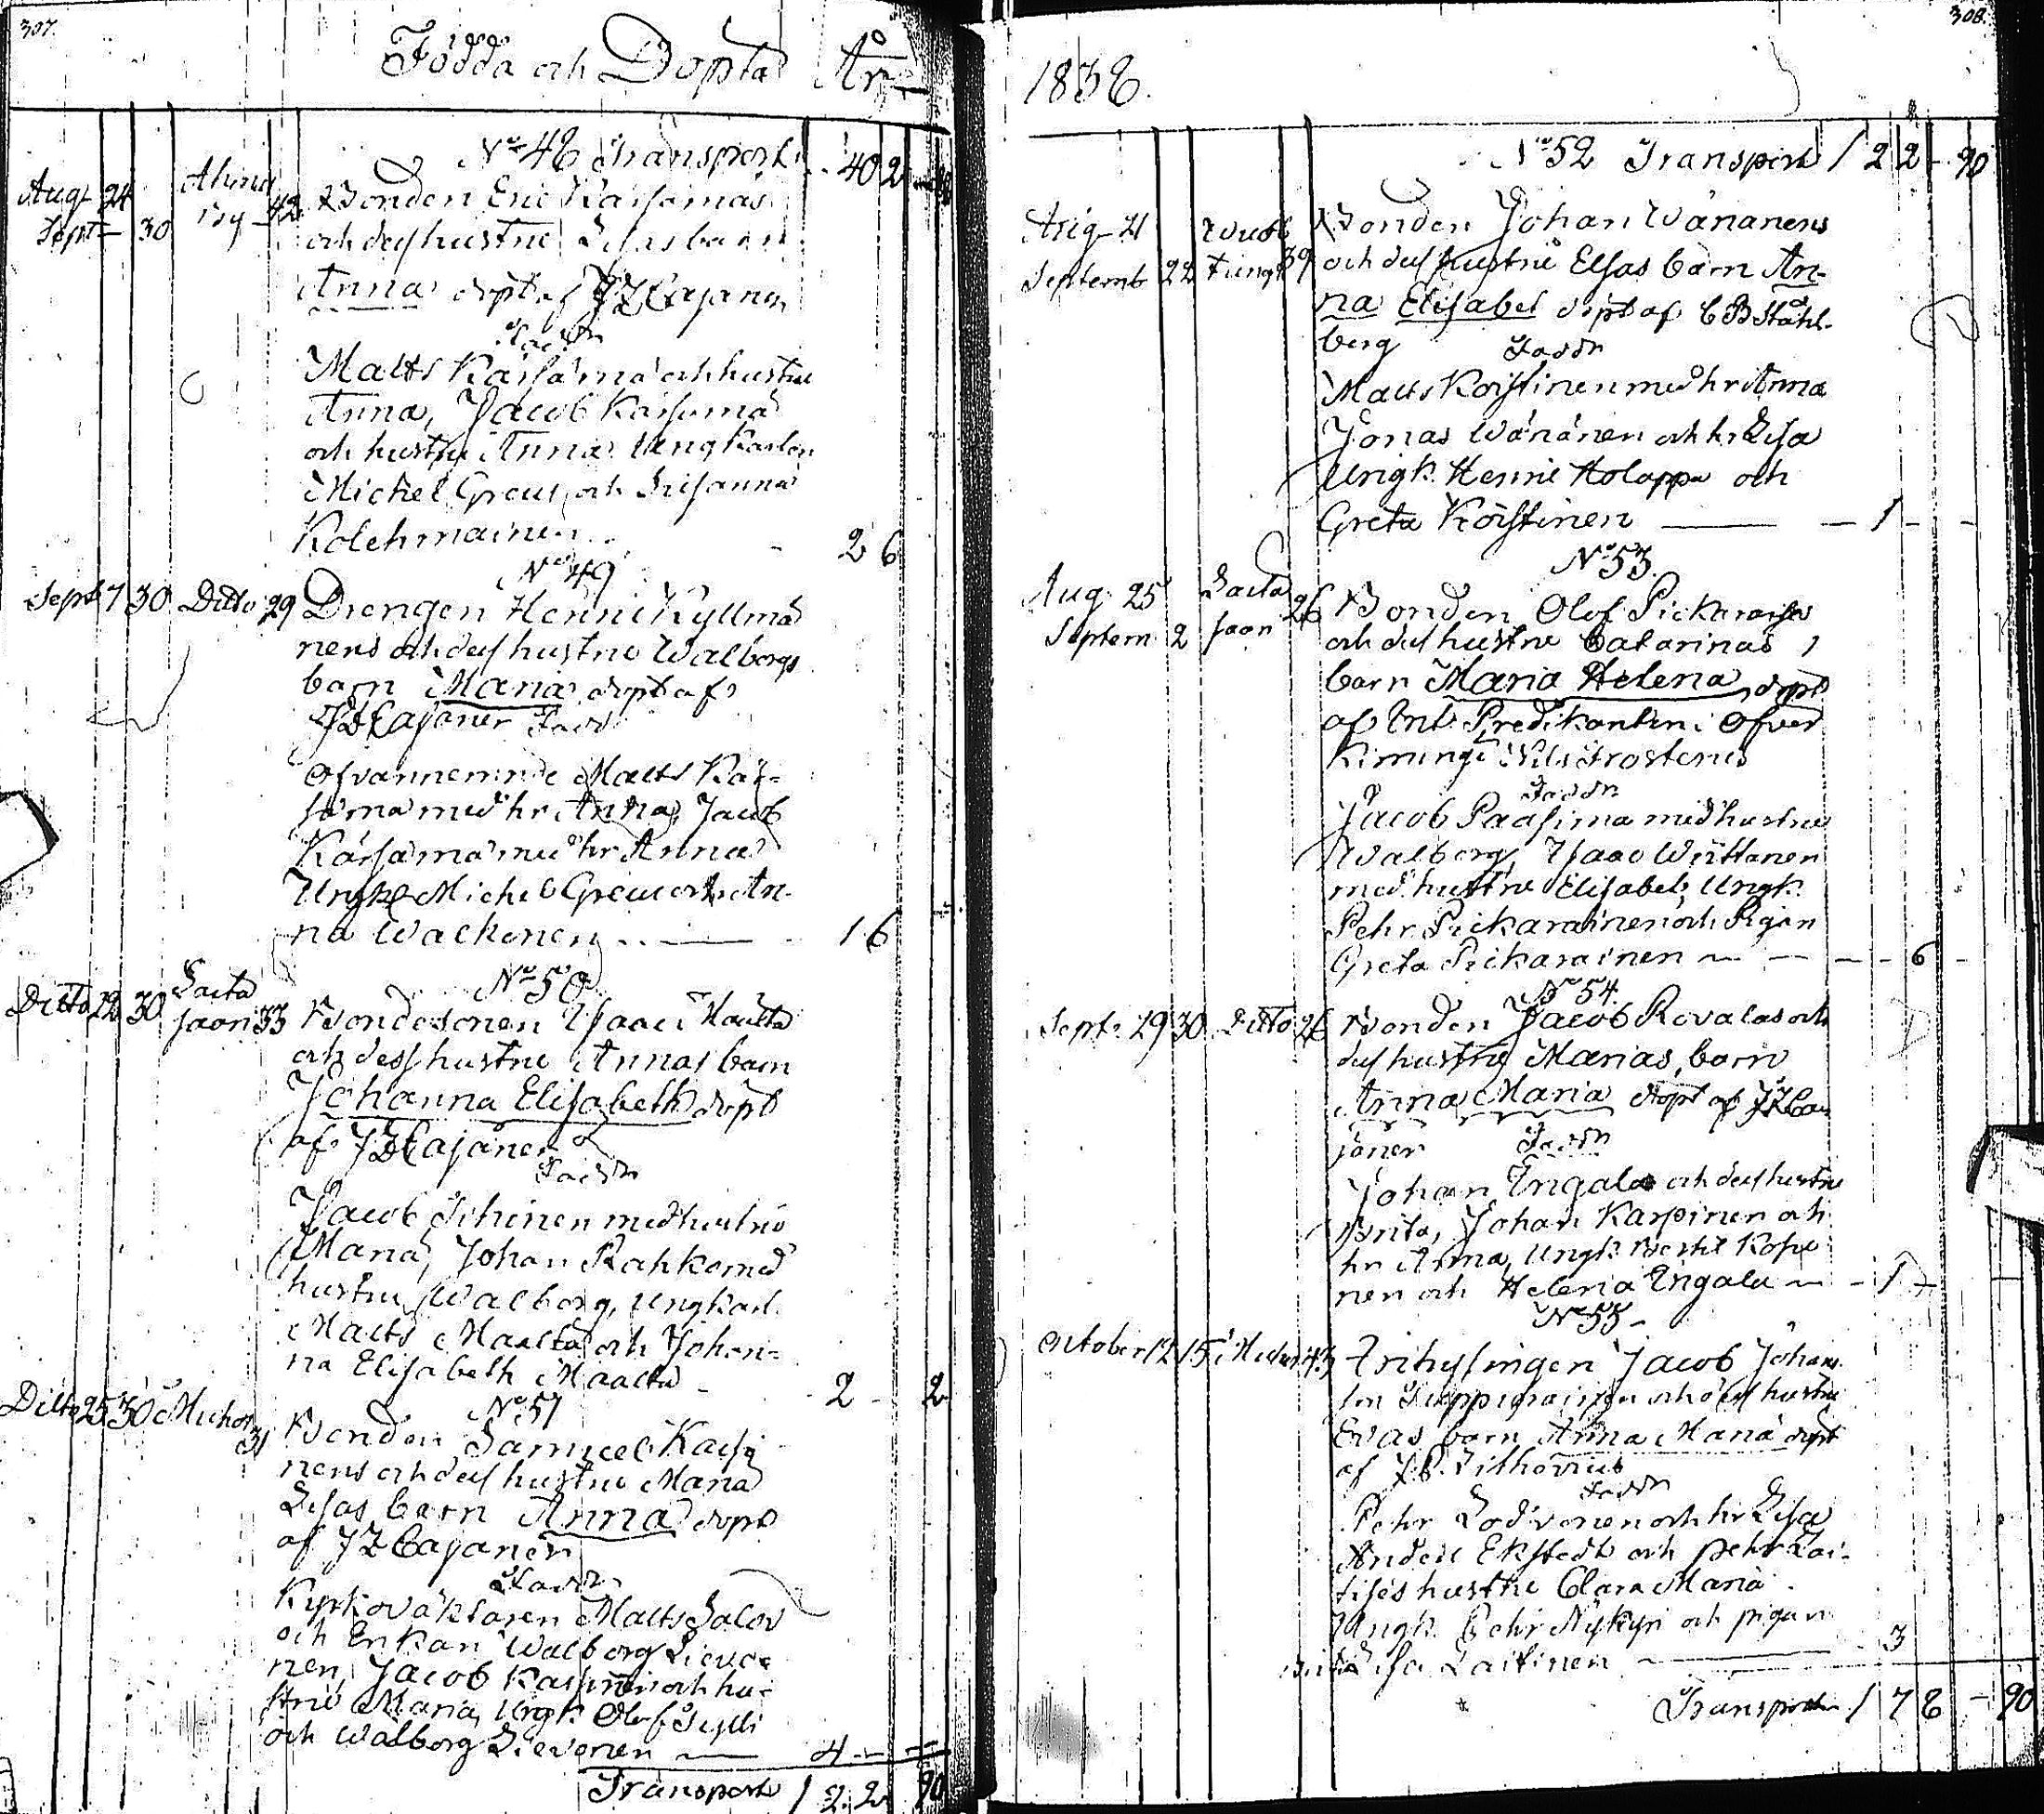 307.
Födda och Döpta År
No 48 Transport 40 2
Aug 24 Bonden Eric Kärsämäs
Sept 30 by 42 och dess hustru Lisas barn
Anna döpt af J Z Cajaner
Faddr
Matts Kärsämä och hustru
Anna, Jacob Kärsämä
och hustru Anna Ungkarlen
Michel Greus och Susanna
Kolehmainen 2 6
No 49
Sept 7 30 Ditto 29 Drengen Henric Kyllmä
nens och dess hustru Walborgs
barn Maria döpt af
J Z Cajaner Faddr
Ofvannemnde Matts Kär-
sämä med hr Anna, Jacob
Kärsämä med hr Anna
Ungk Michel Greus och An-
na Walkonen 1 6
No 50
Ditto 12 30 Saaon 33 Bondesonen Isaac Maalta
och dess hustru Annas barn
Johanna Elisabeth döpt
af J Z Cajaner
Faddr
Jacob Tihinen med hustru
Maria, Johan Rahko med
hustru Walborg, Ungkarl.
Matts Maalta och Johan-
na Elisabeth Maalta 2 2
No 51
Ditto 25 30 31 Bonden Samuel Karpi
nens och dess hustru Maria
Lisas barn Anna döpt
af J Z Cajaner
Faddr
Kyrkoväktaren Matts Salov
och Enkan Walborg Lievo
nen, Jacob Karpinen och hu-
stru Maria, Ungk. Olof
och Walborg Lievonen 4
Transport 1 2 2 90
308.
1838.
No 52 Transport 1 2 2 - 90
Aug 21 Bonden Johan Wänänens
Septemb 22 39 och dess hustru Elsas barn An-
na Elisabet döpt af C B Ståhl-
berg Faddr
Matts Koistinen med hr Anna
Jonas Wänänen och hr Lisa
Ungk. Henric Holappa och
Greta Koistinen 1
No 53.
Aug. 25 26 Bonden Olof Pickarais
Septem 2 och dess hustru Catarinas
barn Maria Helena, döpt
af Predikanten i Öfver
Kiminge Nils Frosterus
Faddr
Jacob Paasima med hustru
Walborg, Isaac Wüttanen
med hustru Elisabet, Ungk.
Pehr Pickarainen och Pigan
Greta Pickarainen 6
No 54.
Sept. 29 30 Ditto 26 Bonden Jacob Kovalas och
dess hustru Marias, barn
Anna Maria döpt af J Z Ca
janer Faddr
Johan Engala och dess hustru
Brita, Johan Karpinen och
hr Anna, Ungk. Bertil
nen och Helena Engala 1
No 55
October 12 15 43 Inhysingen Jacob Johans
son och dess hustru
Evas barn Anna Maria döpt
af Lithovius
Faddr
Pehr Lodvonen och hr Lisa
Anders Ekstedt och Pehr Lai-
tises hustru Clara Maria
Ungk. Pehr Nykyri och pigan
Lisa Laitinen 3
Transport 1 7 8 - 90